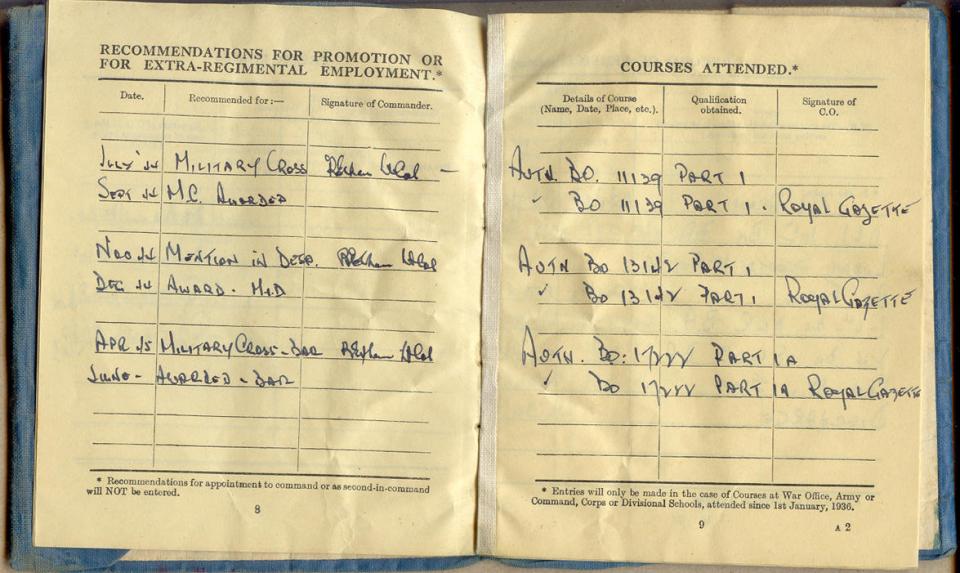 RECOMMENDATIONS FOR PROMOTION OR
FOR EXTRA-REGIMENTAL EMPLOYMENT.*
Date. Recommended for:— Signature of Commander.
JULY '44 MILITARY CROSS
SEPT 44 M.C. AWARDED
NOV 44 MENTION IN DESP.
DEC 44 AWARD - M.D
APR 45 MILITARY CROSS - BAR
JUNE - AWARDED - BAR
* Recommendations for appointment to command or as second-in-command
will NOT be entered.
8
COURSES ATTENDED.*
Details of Course Qualification Signature of
(Name, Date, Place, etc.). obtained. C.O.
AUTN. BO. 11139 PART 1
" BO 11139 PART 1 - ROYAL GAZETTE
AUTN BO PART 1
" BO PART 1 ROYAL GAZETTE
AUTN. BO: PART 1A
" BO PART 1A ROYAL GAZETTE
* Entries will only be made in the case of Courses at War Office, Army or
Command, Corps or Divisional Schools, attended since 1st January, 1936.
9 A 2